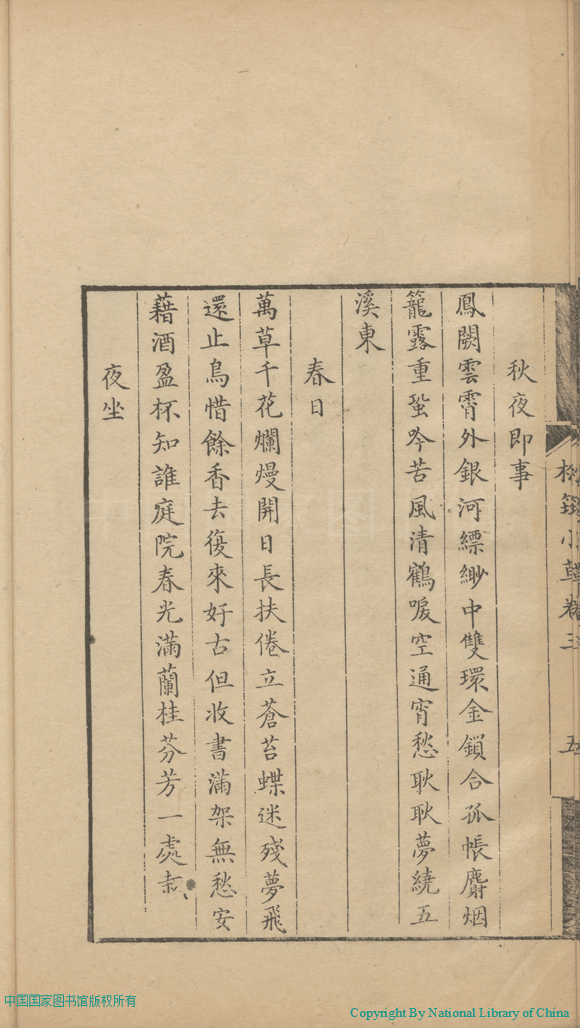 秋夜即事
鳳闕雲霄外銀河縹緲中雙環金鎖合孤帳麝烟
籠露重蛩吟苦風清鶴唳空通宵愁耿耿夢繞五
溪東
春日
萬草千花爛熳開日長扶倦立蒼苔蝶迷殘夢飛
還止鳥惜餘香去復來好古但收書滿架無愁安
藉酒盈杯知誰庭院春光滿蘭桂芬芳一處栽
夜坐
小草卷三
五
中国国家图书馆版权所有
Copyright By National Library of China